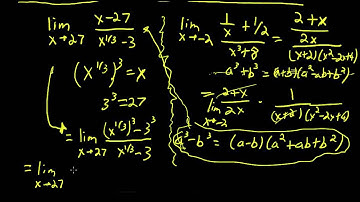 lim x→27 (x-27)/(x^{1/3}-3)
(x^{1/3})^3 = x
3^3 = 27
= lim x→27 ((x^{1/3})^3 - 3^3)/(x^{1/3}-3)
= lim x→27
lim x→-2 (1/x + 1/2)/(x^3+8) = ((2+x)/(2x))/((x+2)(x^2-2x+4))
a^3+b^3 = (a+b)(a^2-ab+b^2)
= lim x→-2 (2+x)/(2x) · 1/((x+2)(x^2-2x+4))
a^3-b^3 = (a-b)(a^2+ab+b^2)